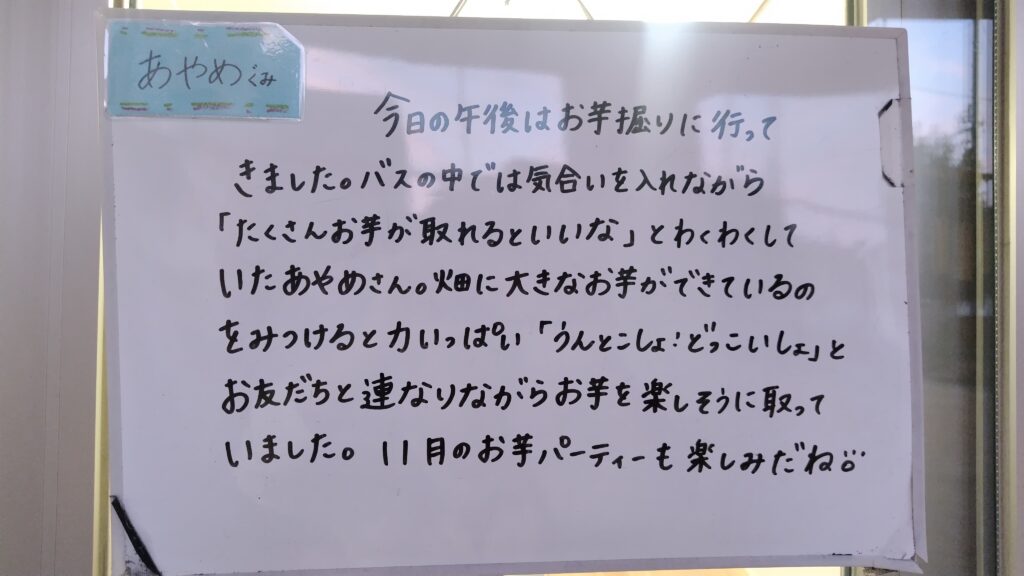 あやめぐみ
今日の午後はお芋掘りに行って
きました。バスの中では気合いを入れながら
「たくさんお芋が取れるといいな」とわくわくして
いたあやめさん。畑に大きなお芋ができているの
をみつけると力いっぱい「うんとこしょ!どっこいしょ」と
お友だちと連なりながらお芋を楽しそうに取って
いました。11月のお芋パーティーも楽しみだね